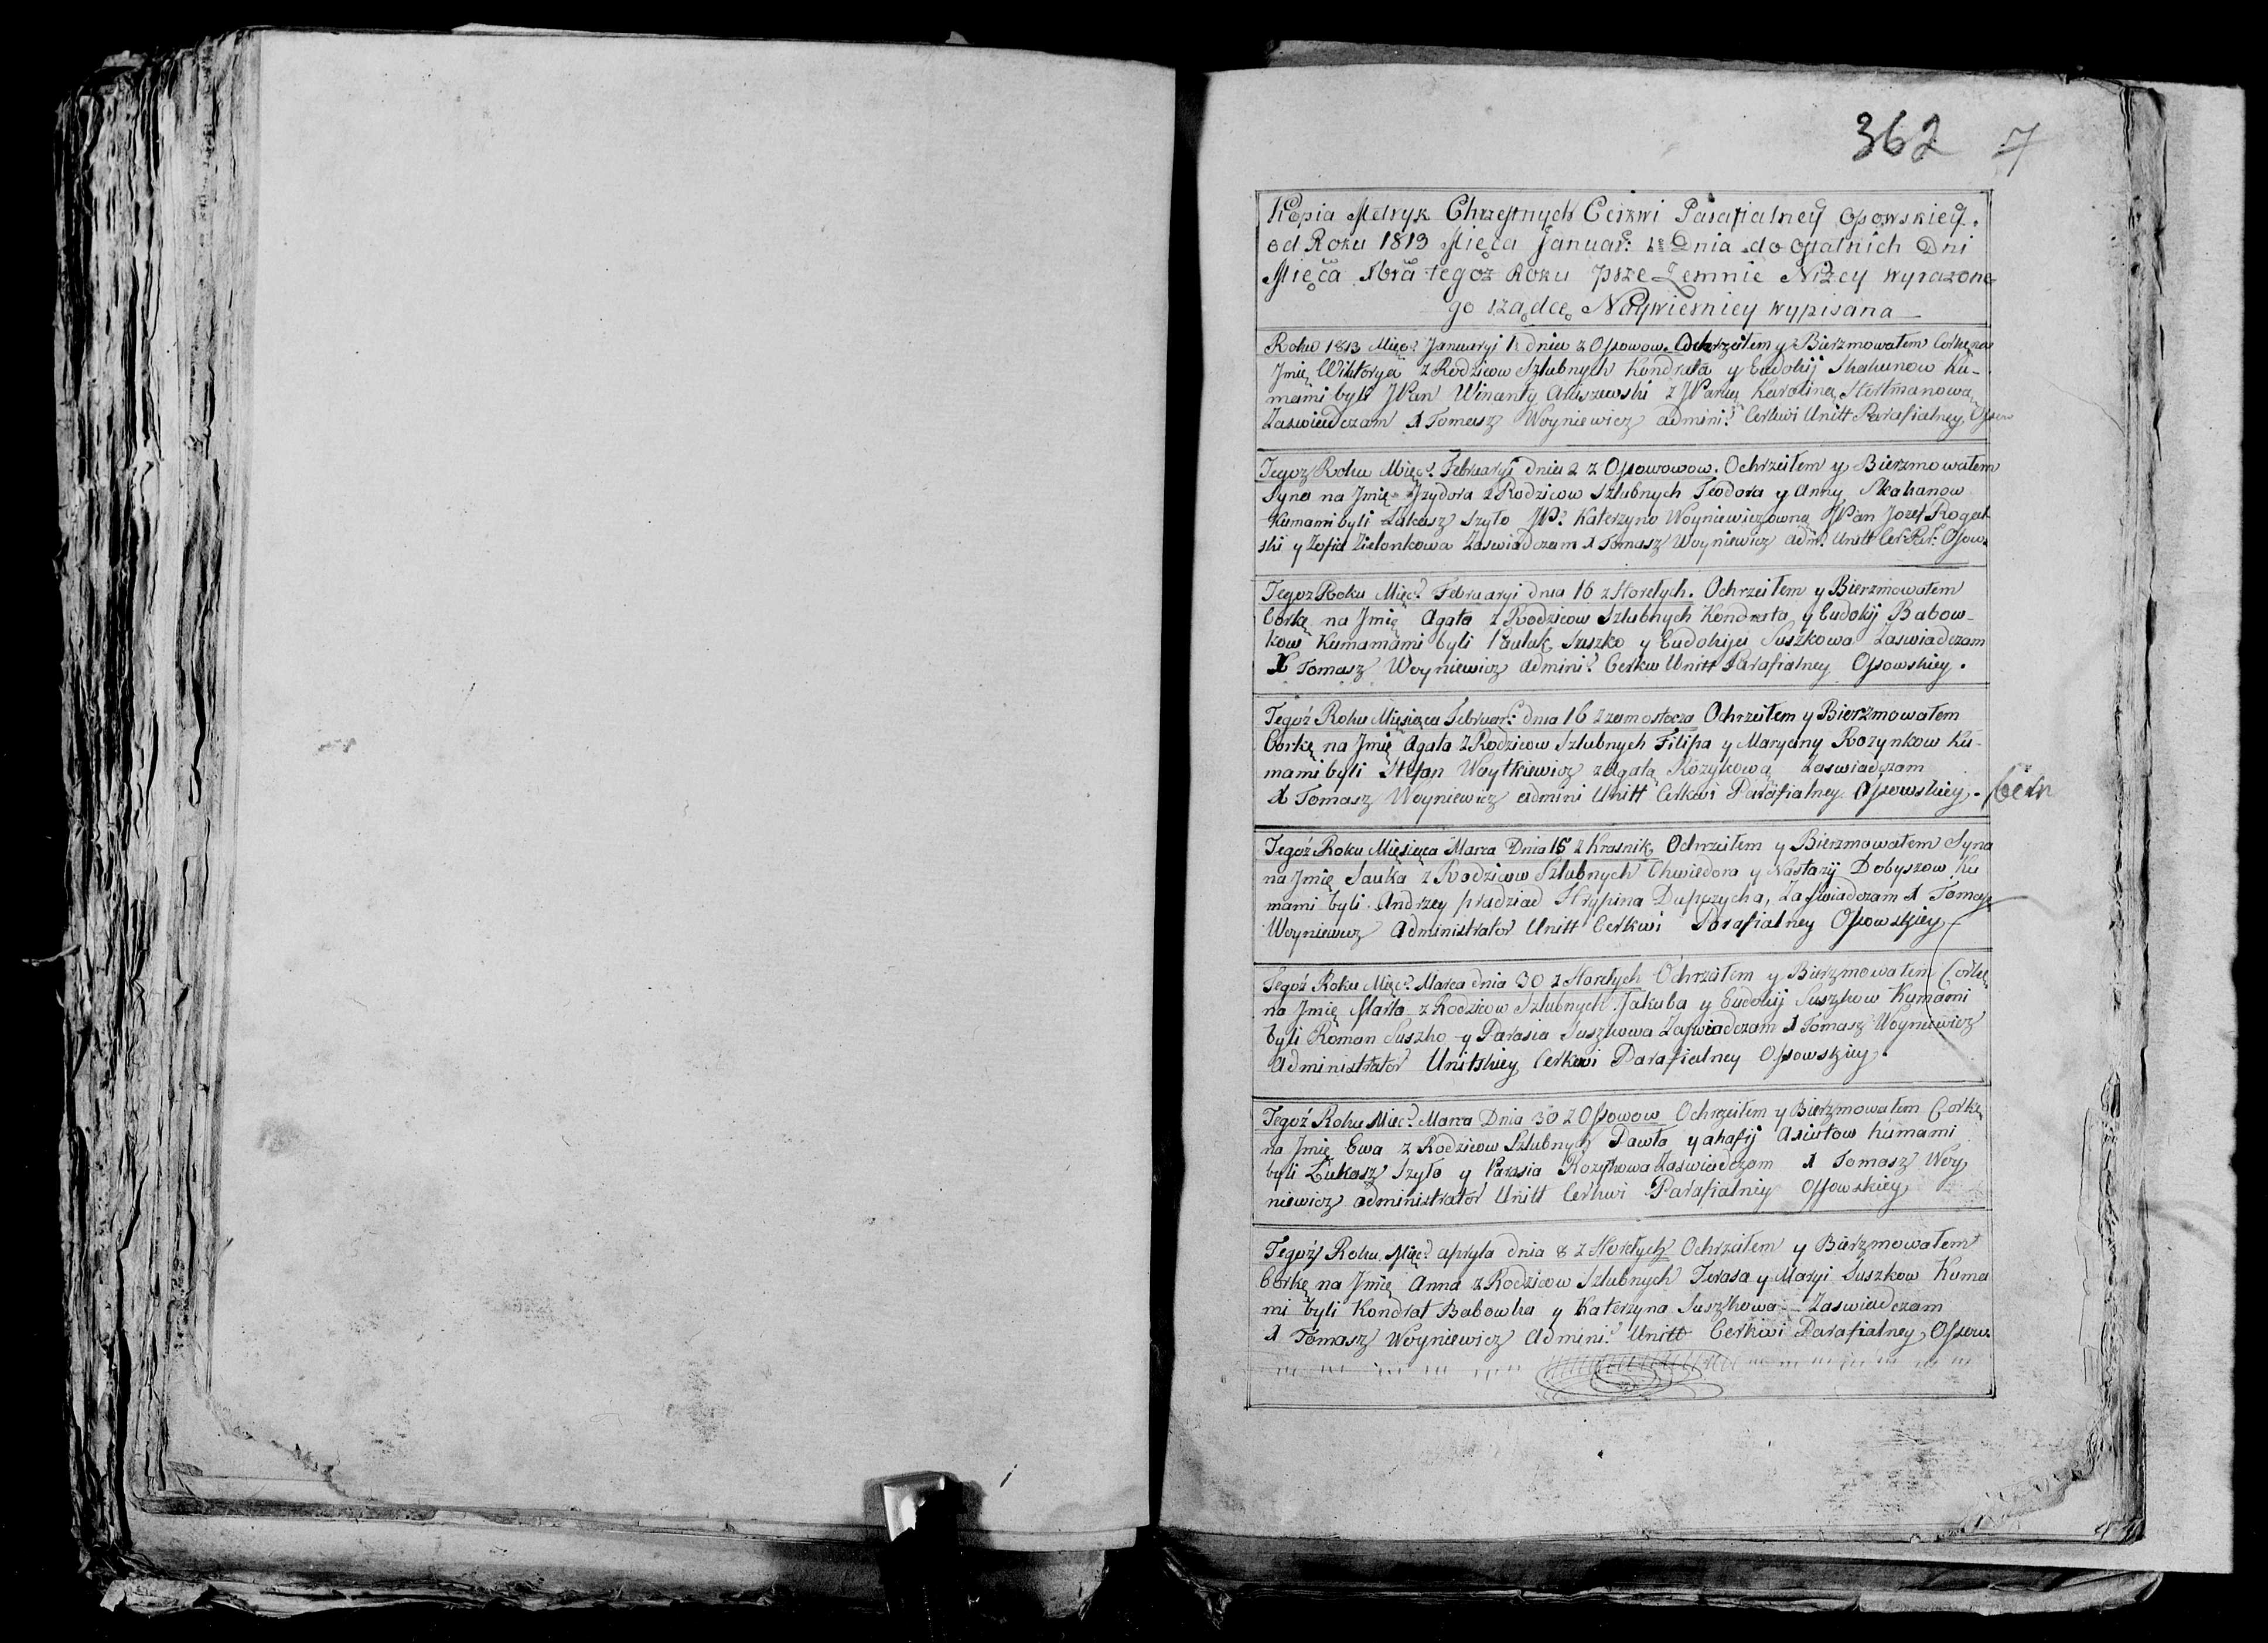 362 7
Kopia Metryk Chrzestnych Cerkwi Parafialney Ossowskiey.
od Roku 1813 Mięca Januar: 1 Dnia do ostatnich Dni
Mięca Xbra tegoż Roku przeżemnie Niżey wyrażone
go rządcę Naywierniey wypisana
Roku 1813 Mięc? Januaryi 1 dnia z Ossowow. Ochrzciłem y Bierzmowałem Corkę na
Jmię Wiktorya z Rodzicow Szlubnych Kondrata y Eudokij Skakunow Ku-
mami byli JPan Winanty Araszewski z JPanią Karoliną Hertmanową
Zaswiadczam X Tomasz Woyniewicz admini? Cerkwi Unitt Parafialney Ossow
Tegoz Roku Mięc? Februaryi dnia 2 z Ossowowow. Ochrzciłem y Bierzmowałem
Syna na Jmię Jzydora z Rodzicow Szlubnych Teodora y Anny Skakanow
Kumami byli Łukasz Szyło JP? Katerzyno Woyniewiczowną JPan Jozef Rogal-
ski y Zofia Zielonkowa Zaswiadczam X Tomasz Woyniewicz adm? Unitt Cer: Par: Ossow.
Tegoz Roku Mięc? Februaryi dnia 16 z Horełych. Ochrzciłem y Bierzmowałem
Corkę na Jmię Agata z Rodzicow Szlubnych Kondrata y Eudokij Babow-
kow Kumamami byli Pauluk Suszko y Eudokija Suszkowa Zaswiadczam
X Tomasz Woyniewicz admini? Cerkw Unitt Parafialney Ossowskiey.
Tegoż Roku Miesiąca Februar: dnia 16 z zamostocza Ochrzciłem y Bierzmowałem
Corkę na Jmię Agata z Rodzicow Szlubnych Filipa y Maryany Rozynkow Ku-
mami byli Stefan Woytkiewicz z Agatą Rozykową Zaswiadczam
X Tomasz Woyniewicz admini Unitt Cerkwi Parafialney Ossowskiey.
Tegoż Roku Miesiąca Marca Dnia 15 z Krasnik Ochrzciłem y Bierzmowałem Syna
na Jmię Sauka z Rodzicow Szlubnych Chwiedora y Nastazij Dobyszow Ku
mami byli Andrzey pradziad Hrypina Dupczycha, Zaswiadczam X Tomasz
Woyniewicz Administrator Unitt Cerkwi Parafialney Ossowskiey
Tegoż Roku Mięc? Marca dnia 30 z Horełych Ochrzciłem y Bierzmowałem Corkę
na Jmię Marta z Rodzicow Szlubnych Jakuba y Eudokij Suszkow Kumami
byli Roman Suszko y Parasia Suszkowa Zaswiadczam X Tomasz Woyniewicz
Administrator Unitskiey Cerkwi Parafialney Ossowskiey.
Tegoż Roku Mięc? Marca Dnia 30 z Ossowow Ochrzciłem y Bierzmowałem Corkę
na Jmię Ewa z Rodzicow Szlubnych Pawła y ahafij Kumami
byli Łukasz Szyło y Parasia Rozykowa Zaswiadczam X Tomasz Woy
niewicz administrator Unitt Cerkwi Parafialney Ossowskiey
Tegoż Roku Mięc? apryla dnia 8 z Horełych Ochrzciłem y Bierzmowałem
Corkę na Jmię Anna z Rodzicow Szlubnych Tarasa y Maryi Suszkow Kuma
mi byli Kondrat Babowka y Katerzyna Suszkowa Zaswiadczam
X Tomasz Woyniewicz Admini? Unitt Cerkwi Parafialney Ossow.